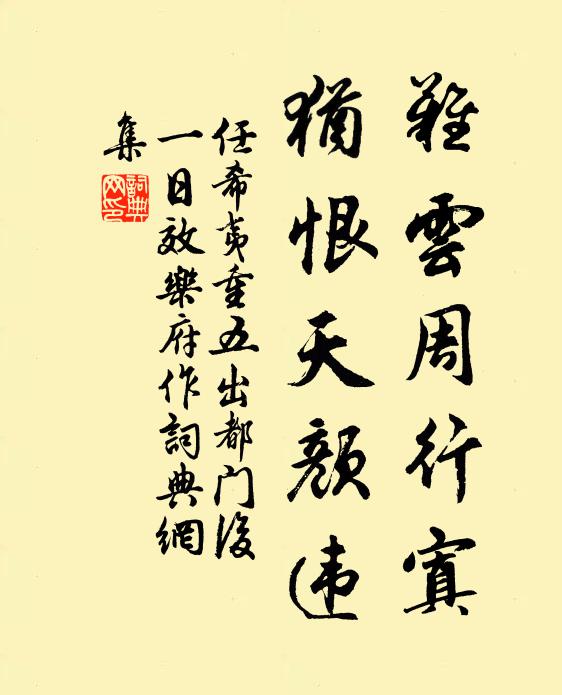 難雲周行寘
猶恨天顏违
任希夷重五出都门後
一日效樂府作詞典網
集
詞典
网印